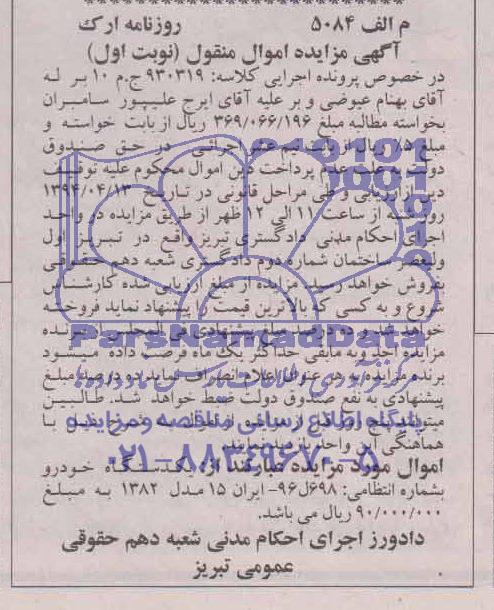 م الف ۵۰۸۴ روزنامه ارک
آگهی مزایده اموال منقول (نوبت اول)
در خصوص پرونده اجرایی کلاسه: ۹۳۰۳۱۹ ج.م ۱۰ بر له
آقای بهنام عیوضی و بر علیه آقای ایرج علیپور سامران
بخواسته مطالبه مبلغ ۳۶۹/۰۶۶/۱۹۶ ریال از بابت خواسته و
مبلغ ریال از بابت نیم عشر اجرائی در حق صندوق
دولت به علت عدم پرداخت دین اموال محکوم علیه توقیف
و طی مراحل قانونی در تاریخ ۱۳۹۴/۰۴/۱۳
روز شنبه از ساعت ۱۱ الی ۱۲ ظهر از طریق مزایده در واحد
اجرای احکام مدنی دادگستری تبریز واقع در تبریز اول
ولیعصر ساختمان شماره دوم دادگستری شعبه دهم حقوقی
بفروش خواهد رسید. مزایده از مبلغ ارزیابی شده کارشناس
شروع و به کسی که بالاترین قیمت را پیشنهاد نماید فروخته
خواهد شد و ده درصد مبلغ پیشنهادی فی المجلس از برنده
مزایده اخذ و به مابقی حداکثر یک ماه فرصت داده میشود
برنده مزایده به هر عنوان اعلان انصراف نماید ده درصد مبلغ
پیشنهادی به نفع صندوق دولت ضبط خواهد شد. طالبین
میتوانند از اموال به شرح ذیل با
هماهنگی این واحد بازدید نمایند.
اموال مورد مزایده عبارتند از: یکدستگاه خودرو
بشماره انتظامی: ۶۹۸ل۹۶- ایران ۱۵ مدل ۱۳۸۲ به مبلغ
۹۰/۰۰۰/۰۰۰ ریال می باشد.
دادورز اجرای احکام مدنی شعبه دهم حقوقی
عمومی تبریز
ParsNamadData
پایگاه اطلاع رسانی مناقصه و مزایده
۰۲۱-۸۸۳۴۹۶۷۰-۵